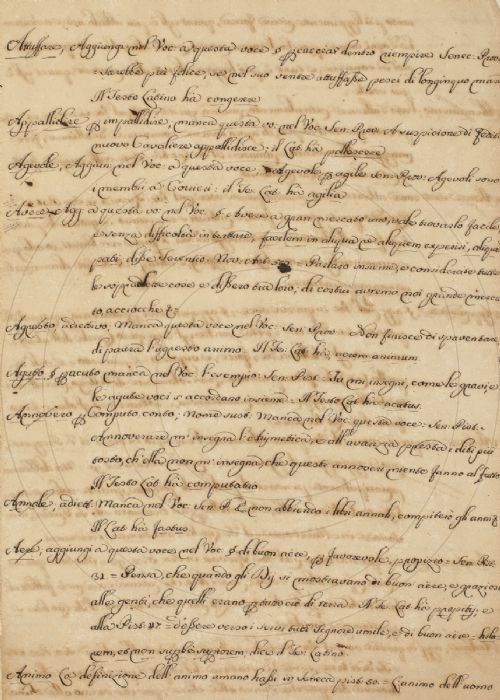 Attuffare, Aggiungi nel Voc: a questa voce p cacciar dentro riempire Senec: Prov:
sarebbe più felice, se nel suo ventre attuffasse pesci di longinquo mare
Il Testo Latino hà congerere
Appallidire p impallidire, manca questa vo: nel Voc: Sen: Prov: A suspicione di
nuovo Cavaliere appallidire; il Lat: hà pallescere
Agevole, Aggiun: nel Voc: a questa voce, Agevole, p agile Sen: Prov: Agevoli sono
i membri a il Te: Lat: hà agilia
Avere Agg: a questa vo: nel Voc: avere a gran mercato uno, vale trovarlo facile,
e senza difficoltà in facilem in aliqua re aliquem experiri, aliqua
disse Terenzio. Nov: Ant: Parlaro insieme, e considerate tutte
le cose e dissero tra loro, di costui avremo noi grande mercato
to acciocche
Agresto adiettivo, Manca questa voce nel Voc: Sen: Prov: Non finisce di spaventare,
di paura l'agresto animo. Il Te: Lat: hà animum
Aguto p acuto manca nel Voc: l'esempio: Sen: Pist: Tu mi insegni, come le gravi, e
le agute voci s'accordano insieme. Il Testo Lat: hà acutus.
Annovero p Computo conto; Nome sust: Manca nel Voc: questa voce: Sen: Pist:
Annoverare m'insegna l'Arismetica, e all'avarizia presta i diti più
tosto, ch'ella non m'insegna, che questi annoveri niente fanno al fatto
Il Testo Lat: hà computatio.
Annale, adiet: Manca nel Voc: Sen: P. E non abbiendo i libri annali, compierò gli anni
Il Lat: hà fastus.
Aere, aggiungi a questa voce nel Voc: di buon aere, p favorevole, propizio: Sen: Pist:
31 = Pensa, che quando gli Dij si mostravano di buon aere, e graziosi
alle genti, che quelli erano di terra = Il Te: Lat: hà propitij; e
alla Pist: 47 = d'essere verso i servi tuoi Segnore umile, e di buon aere = hila-
rem, et non superbè superiorem, dice il Te: Latino
Animo La definizione dell'animo umano hassi in Seneca Pist: 50 = L'animo dell'uomo